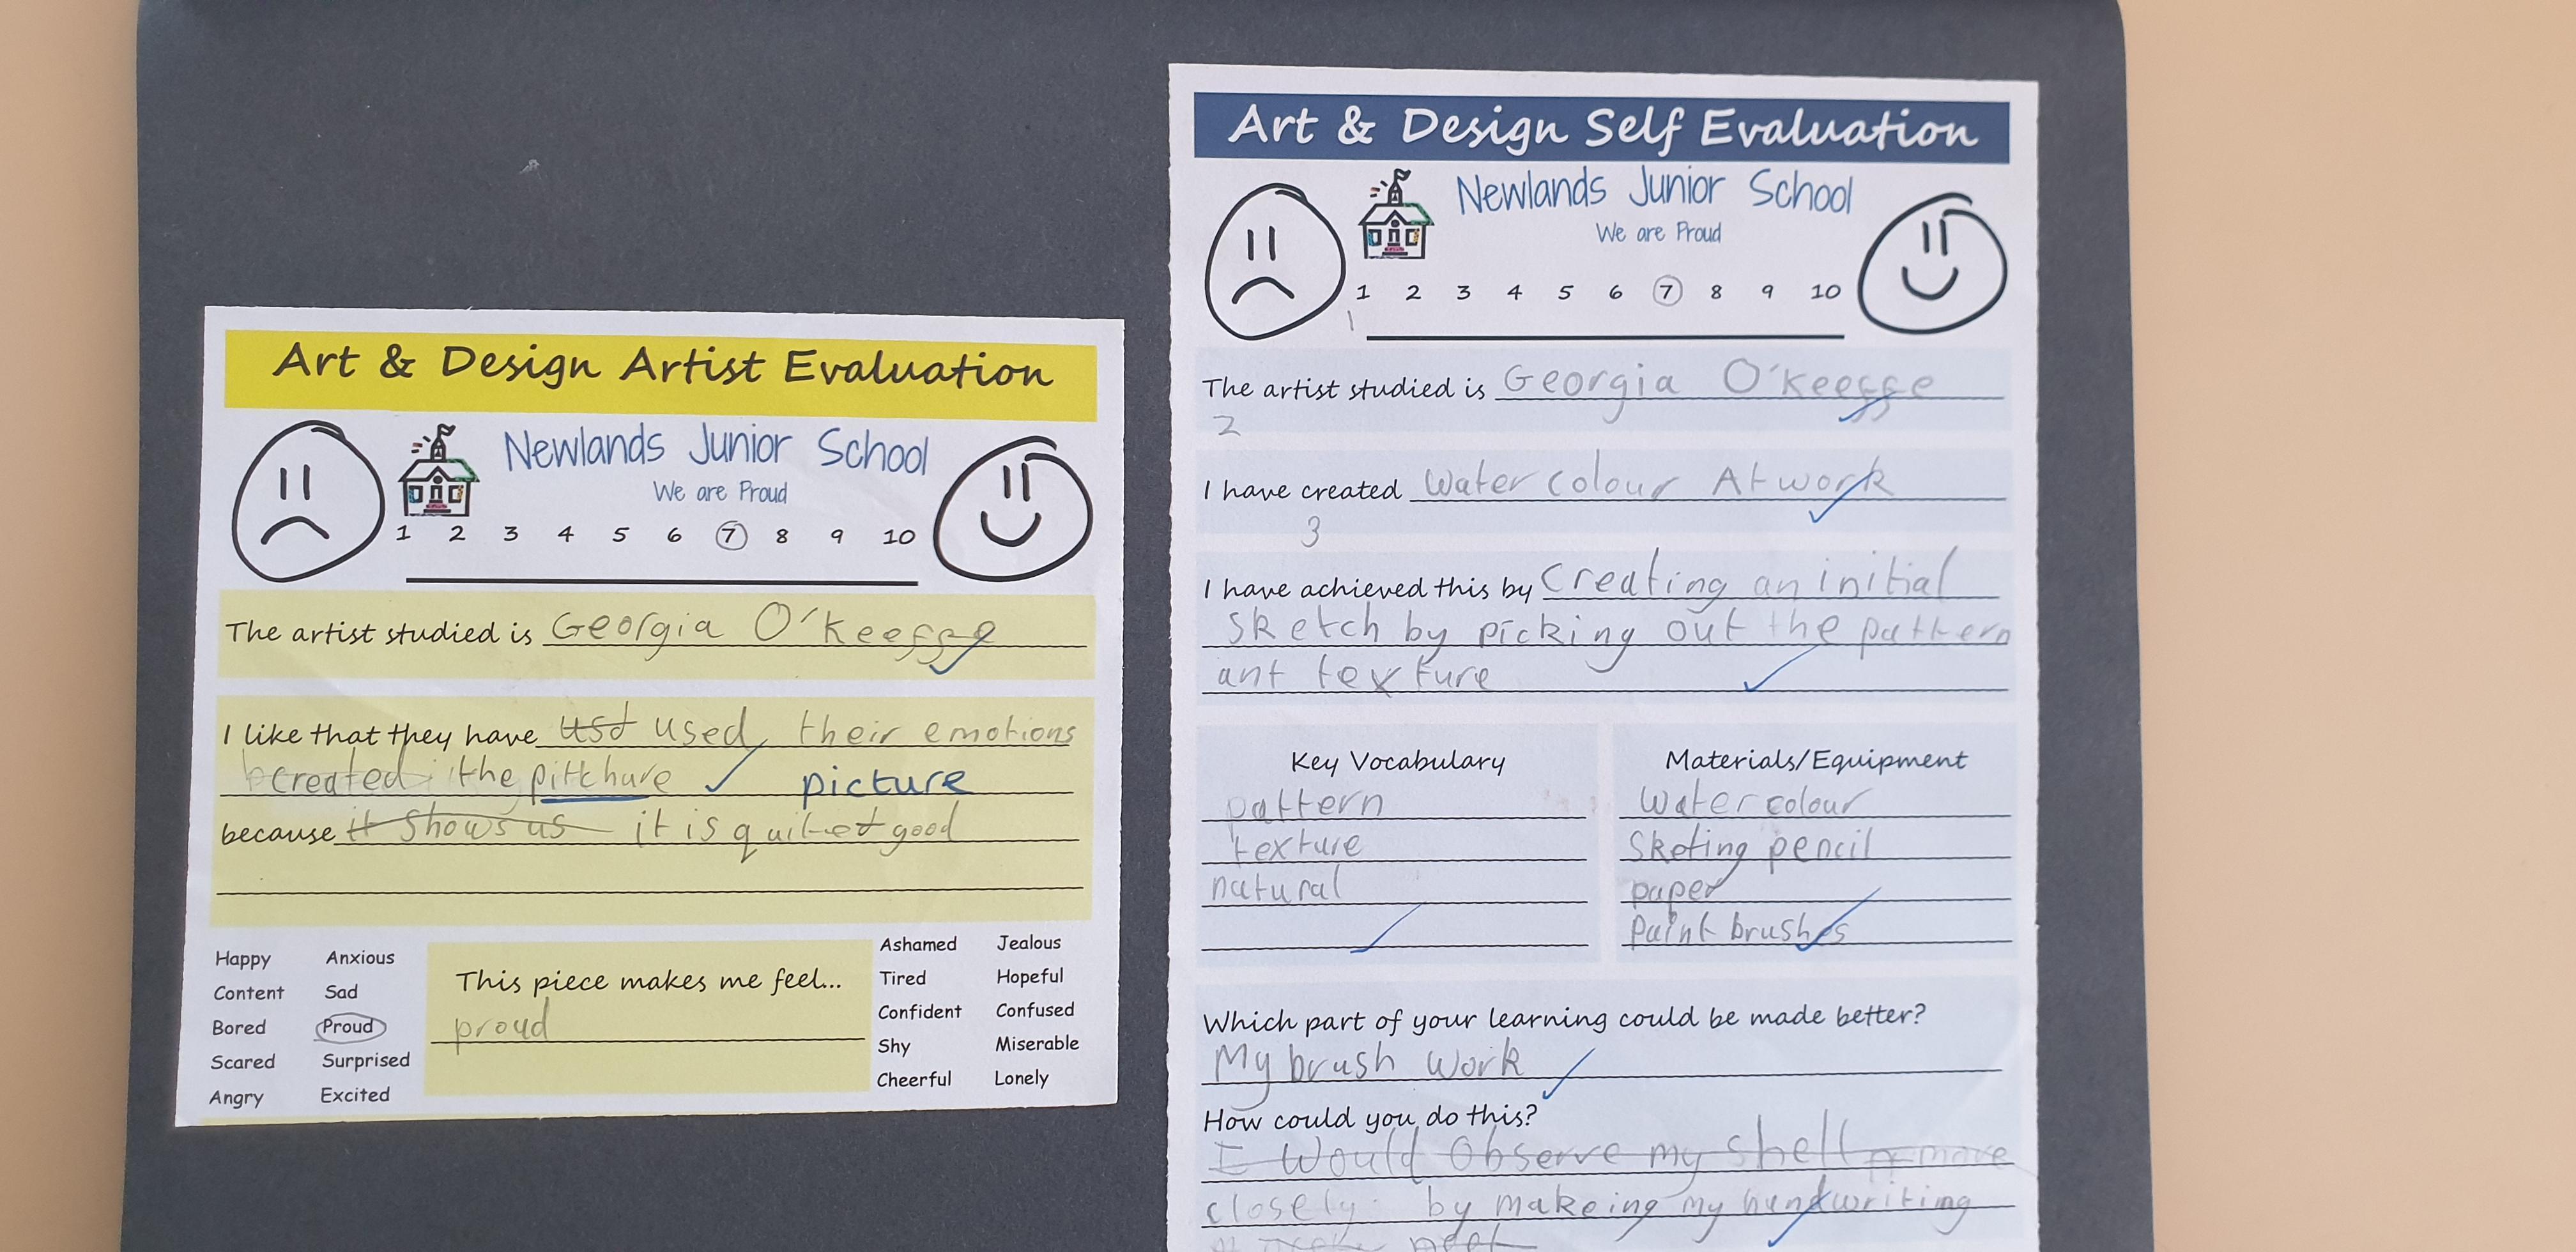 Art & Design Artist Evaluation
Newlands Junior School
We are Proud
1 2 3 4 5 6 7 8 9 10
The artist studied is Georgia O'Keeffe
I like that they have ust used their emotions
created the pitchure picture
because it shows us it is quite good
Happy Anxious
Content Sad
Bored Proud
Scared Surprised
Angry Excited
This piece makes me feel...
proud
Ashamed Jealous
Tired Hopeful
Confident Confused
Shy Miserable
Cheerful Lonely
Art & Design Self Evaluation
Newlands Junior School
We are Proud
1 2 3 4 5 6 7 8 9 10
1
The artist studied is Georgia O'Keeffe
2
I have created Water colour Atwork
3
I have achieved this by Creating an initial
Sketch by picking out the pattern
ant texture
Key Vocabulary
pattern
texture
natural
Materials/Equipment
Watercolour
Sketing pencil
paper
Paint brushes
Which part of your learning could be made better?
My brush work
How could you do this?
I Would Observe my shell more
closely. by makeing my handwriting
neat